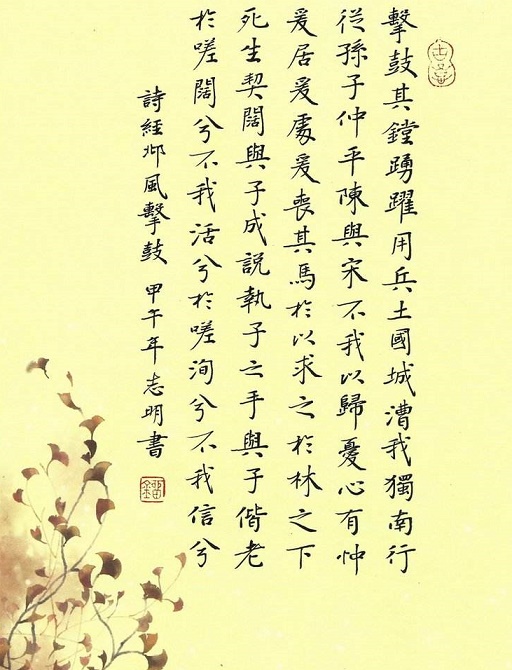 擊鼓其鏜踴躍用兵土國城漕我獨南行
從孫子仲平陳與宋不我以歸憂心有忡
爰居爰處爰喪其馬於以求之於林之下
死生契闊與子成説執子之手與子偕老
於嗟闊兮不我活兮於嗟洵兮不我信兮
詩經邶風擊鼓 甲午年志明書